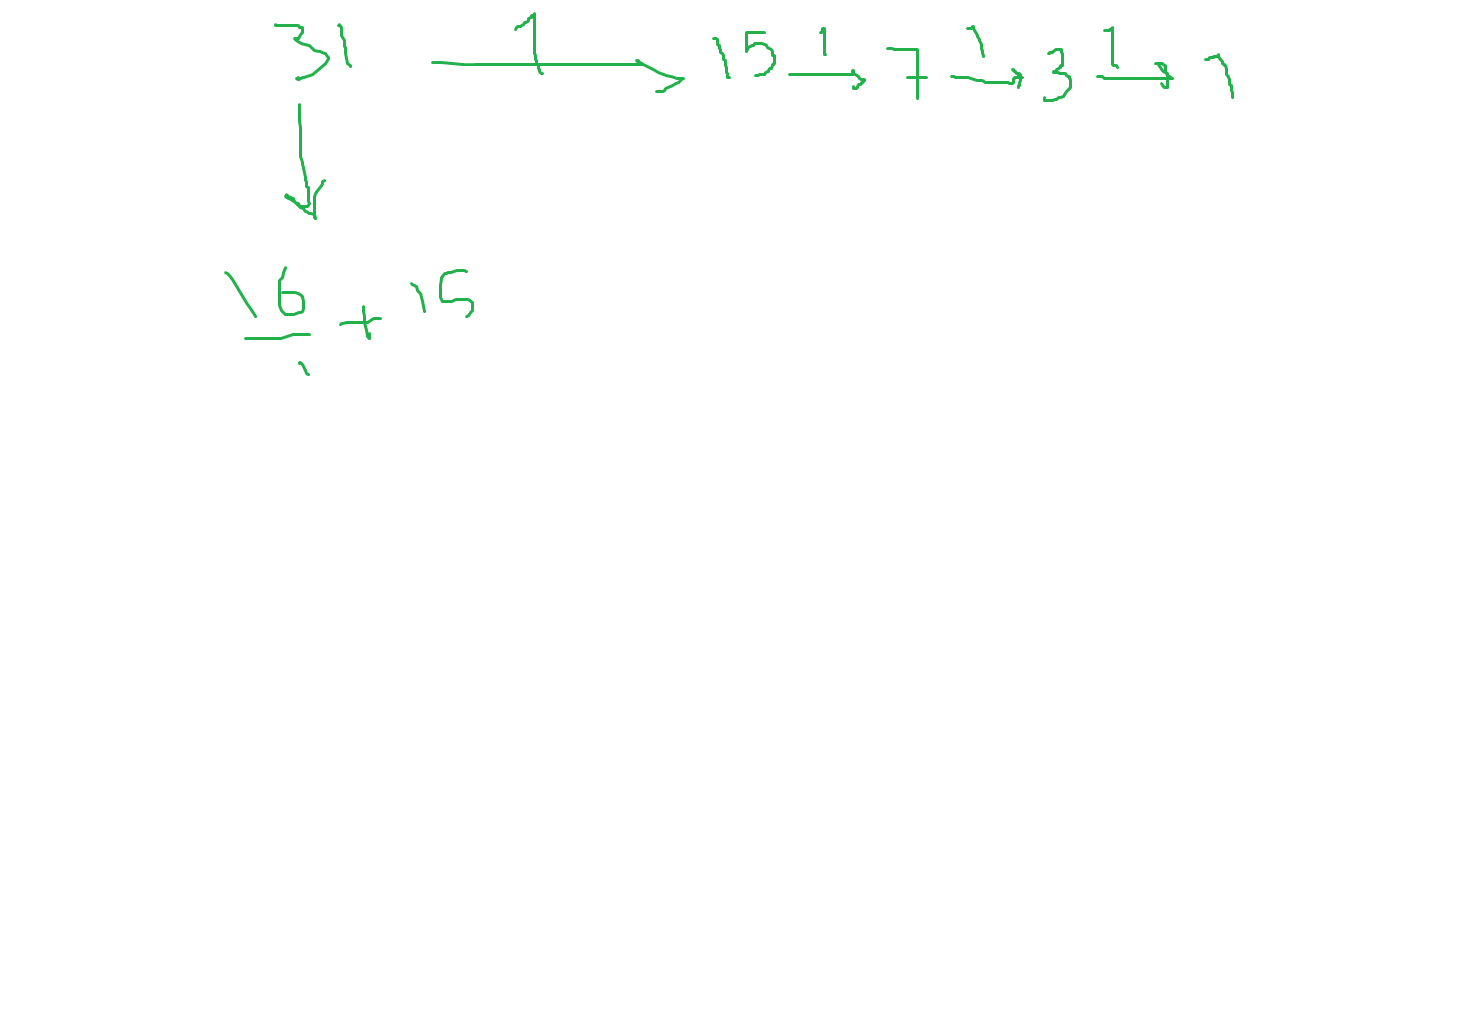 31 1 → 15 1 → 7 1 → 3 1 → 1
↓
16 + 15
1